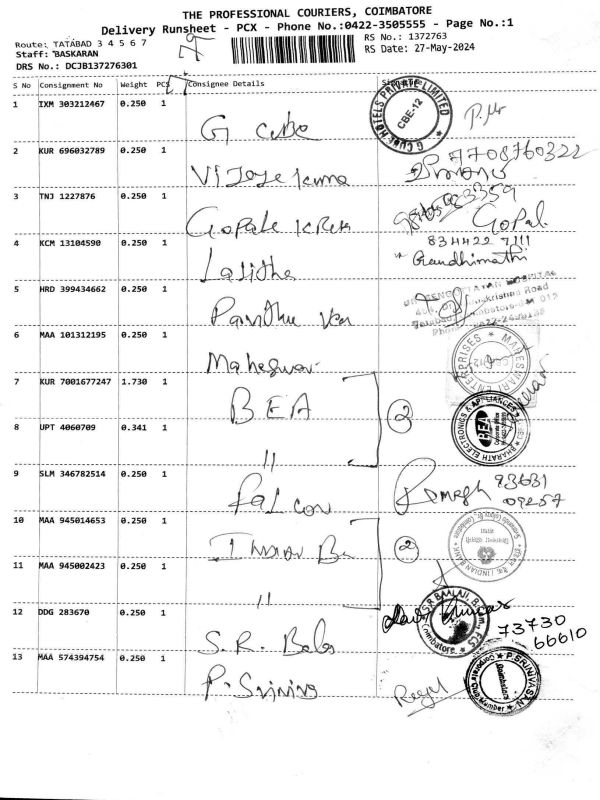 THE PROFESSIONAL COURIERS, COIMBATORE
Delivery Runsheet - PCX - Phone No.:0422-3505555 - Page No.:1
Route: TATABAD 3 4 5 6 7
RS No.: 1372763
Staff: BASKARAN
RS Date: 27-May-2024
DRS No.: DCJB137276301
S No Consignment No Weight PCS Consignee Details
1 IXM 303212467 0.250 1
G CUBE HOTELS PRIVATE LIMITED
CBE-12
G Cube
2 KUR 696032789 0.250 1
Vijaye Kuma
7708760322
3 TNJ 1227876 0.250 1
Gopal
4 KCM 13104590 0.250 1
Lalitha
834422 7111
Gandhimathi
5 HRD 399434662 0.250 1
6 MAA 101312195 0.250 1
Maheswar
MAHESWARI ENTERPRISES
7 KUR 7001677247 1.730 1
BEA
2
BHARATH ELECTRONICS & APPLIANCES
BEA
8 UPT 4060709 0.341 1
"
9 SLM 346782514 0.250 1
Falcon
Romesh 93631
09257
10 MAA 945014653 0.250 1
2
INDIAN BANK
11 MAA 945002423 0.250 1
"
12 DDG 283670 0.250 1
S.R. Bala
Coimbatore
73730
66610
13 MAA 574394754 0.250 1
P. Srinivs
P. SRINIVASAN
Coimbatore